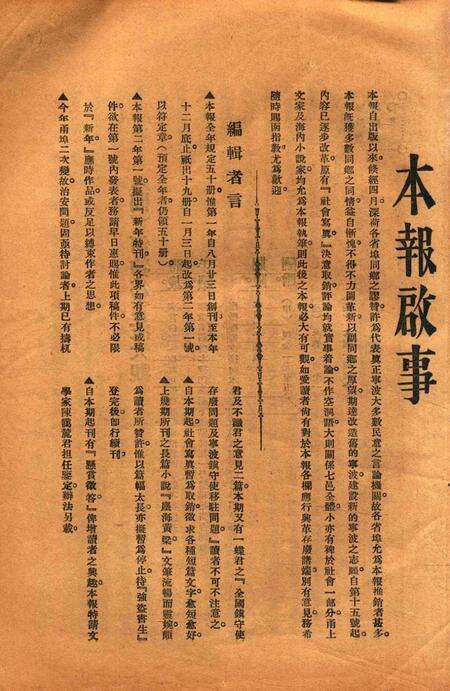 本報啟事
本報自出版以來倏經四月深荷各省埠同鄉之謬贊許為代表眞正寧波大多數民意之言論機關故各省埠允為本報推銷者甚多
本報既獲多數同鄉之同情益自慚愧不得不力圖革新以副同鄉之厚望期達改造舊的寧波建設新的寧波之志願自第十五號起
內容已逐步改革原有『社會寫眞』決意取銷評論均就實事着論不作空洞語大則關係七邑全體小亦有裨於社會一部分甬上
文家及海內小說家均允為本報執筆則此後之本報必大有可觀如愛讀者尙有對於本報各欄應行興革存廢諸端別有意見務希
隨時賜函指敎尤為歡迎
編輯者言
▲本報全年規定五十册惟第一年自八月廿三日創刊至本年
十二月底止祇出十九册自一月三日起改為第二年第一號
以符定章（預定全年者仍領五十册）
▲本報第二年第一號擬出『新年特刊』各界如有意見或稿
件欲在第一號內發表者務請早日惠賜惟此項稿件不必限
於『新年』應時作品或反足以縛束作者之思想
▲今年甬埠二次變故治安問題固亟待討論者上期已有擣杌
君及不識君之意見二篇本期又有一蝶君之『全國鎭守使
存廢問題及寧波鎭守使移駐問題』讀者不可不注意之
▲自本期起社會寫眞暫為取銷徵求各種短篇文字愈短愈好
▲上幾期所刊之長篇小說『塵海黃梁』文筆流暢而疑婉頗
為讀者所贊許惟以篇幅太長亦擬暫為停止待『強盜書生』
登完後卽行續刊
▲自本期起刊有『懸賞徵答』俾增讀者之興趣本報特請文
學家陳鶴麓君担任鑒定辦法另載